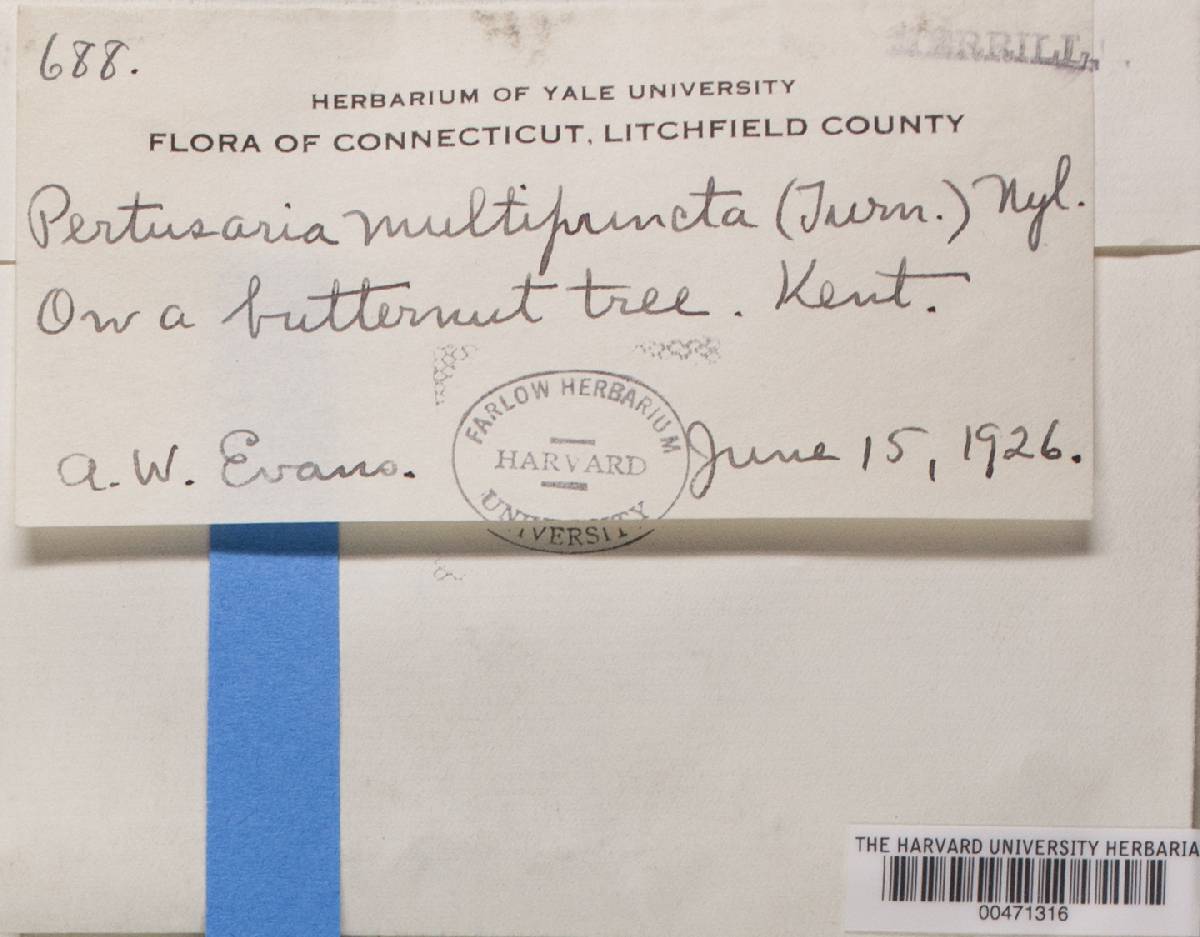 688.
MERRILL.
HERBARIUM OF YALE UNIVERSITY
FLORA OF CONNECTICUT, LITCHFIELD COUNTY
Pertusaria multipuncta (Turn.) Nyl.
On a butternut tree. Kent.
A. W. Evans.
June 15, 1926.
FARLOW HERBARIUM
HARVARD
UNIVERSITY
THE HARVARD UNIVERSITY HERBARIA
00471316